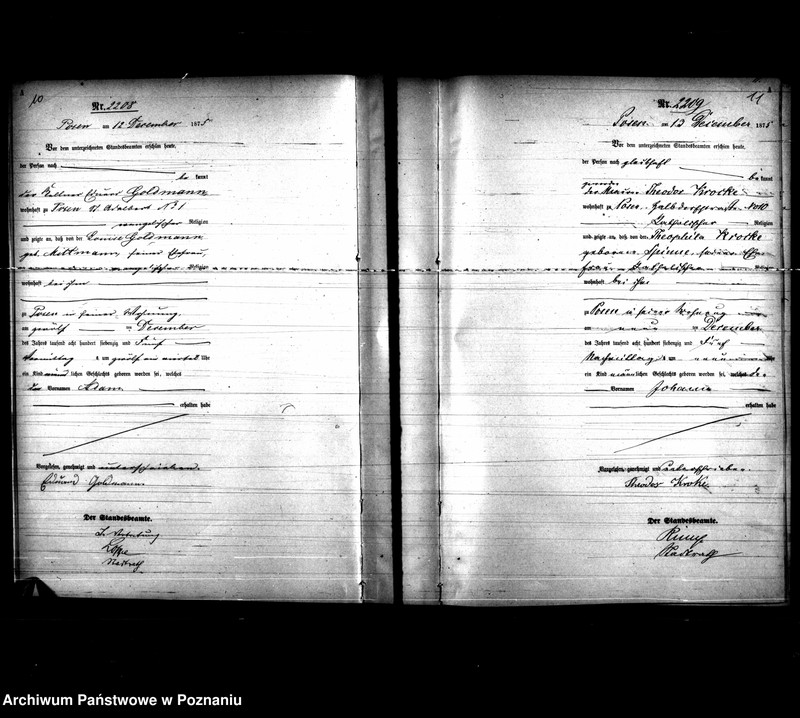 10
Nr. 2208
Posen am 12 December 1875
Vor dem unterzeichneten Standesbeamten erschien heute,
der Person nach
be kannt
der Kellner Eduard Goldmann
wohnhaft zu Posen St. Adalbert No 1
evangelischer Religion
und zeigte an, daß von der Louise Goldmann
geb. Mittmann, seiner Ehefrau,
evangelischer Religion
wohnhaft bei ihm
zu Posen in seiner Wohnung
am zwölf ten December
des Jahres tausend acht hundert siebenzig und Fünf
Vormittag s um Uhr
ein Kind lichen Geschlechts geboren worden sei, welches
Vornamen Adam
erhalten habe
Vorgelesen, genehmigt und unterschrieben.
Eduard Goldmann.
Der Standesbeamte.
In Vertretung
Stadtrath
11
Nr. 2209
Posen am 13 December 1875
Vor dem unterzeichneten Standesbeamten erschien heute,
der Person nach
be kannt
der Theodor Krocke
wohnhaft zu Posen, Halbdorfstraße No 10
katholischer Religion
und zeigte an, daß von der Theophila Krocke
geborenen seiner Ehe
frau katholischer Religion
wohnhaft bei ihm
zu Posen in seiner Wohnung
am neun ten December
des Jahres tausend acht hundert siebenzig und Fünf
Nachmittag s um neun Uhr
ein Kind männlichen Geschlechts geboren worden sei, welches den
Vornamen Johann
erhalten habe
Vorgelesen, genehmigt und unterschrieben.
Theodor Kroke.
Der Standesbeamte.
Stadtrath
Archiwum Państwowe w Poznaniu